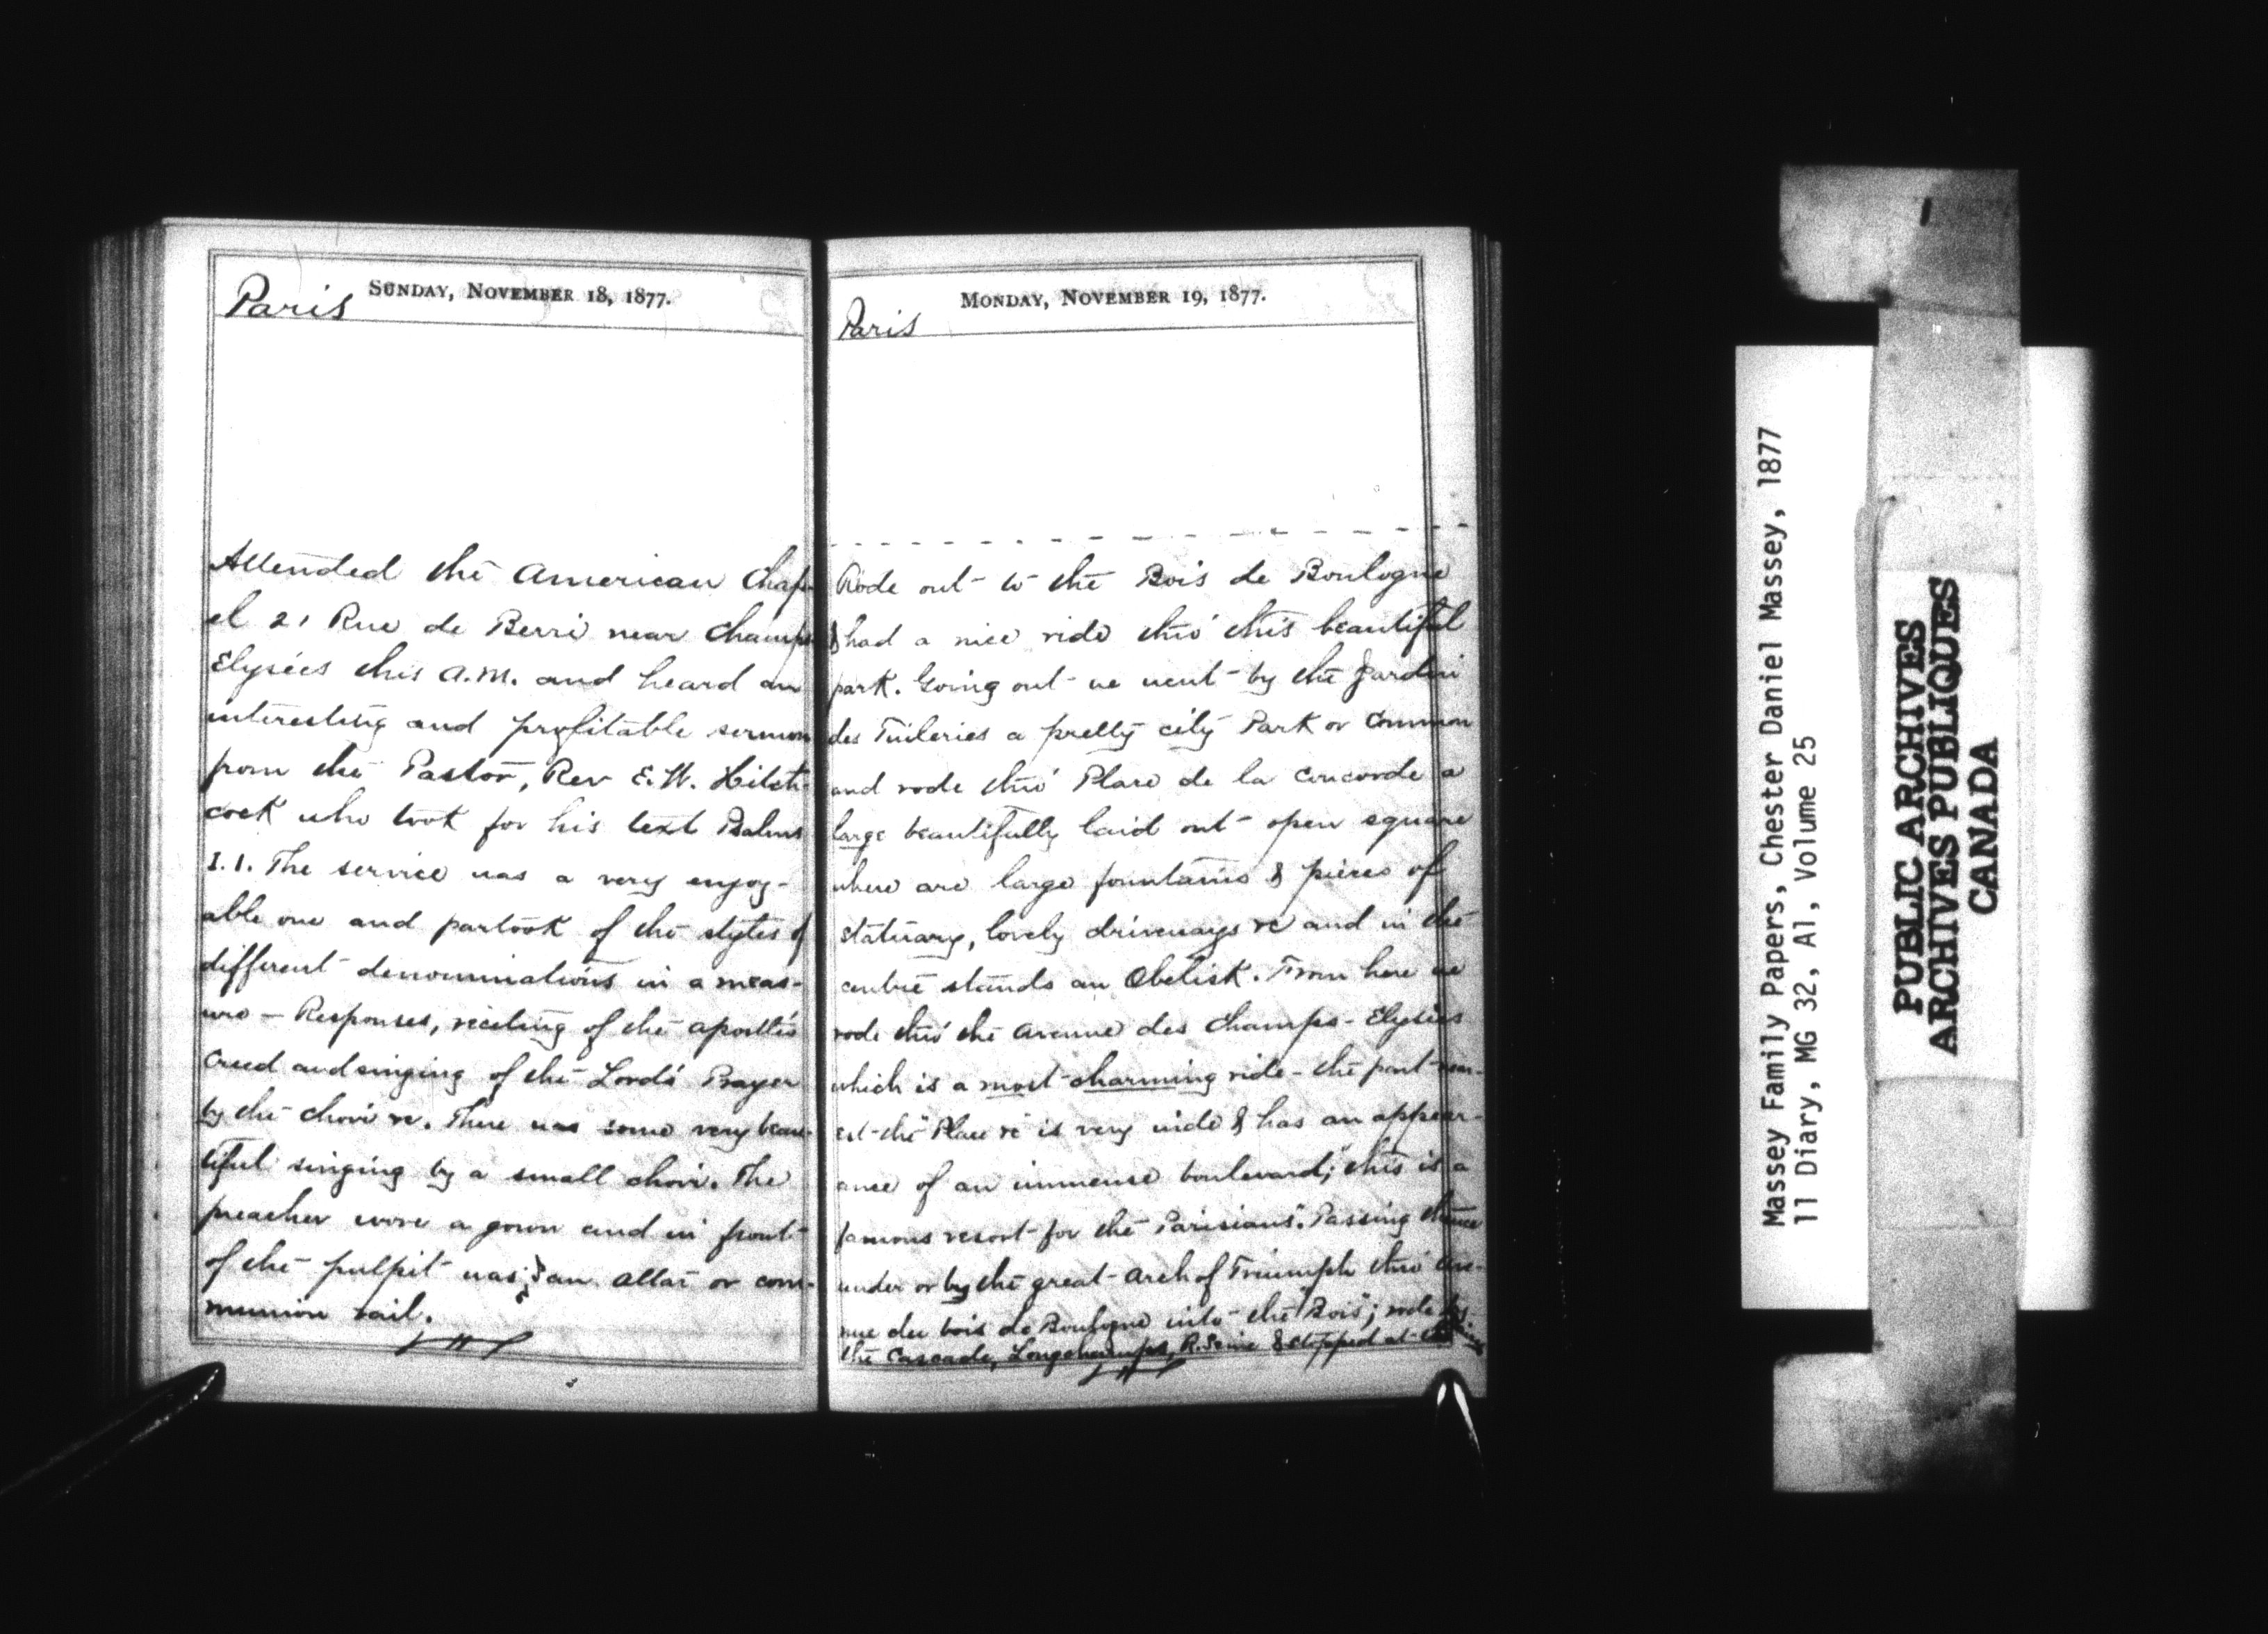 Sunday, November 18, 1877.
Paris
Attended the American Chap-
el 21 Rue de Berri near Champs
Elysées this A.M. and heard an
interesting and profitable sermon
from the Pastor, Rev E. W. Hitch-
cock who took for his text Psalms
I. 1. The service was a very enjoy-
able one and partook of the styles of
different denominations in a meas-
ure — Responses, reciting of the apostles
creed and singing of the Lord's Prayer
by the choir &c. There was some very beau-
tiful singing by a small choir. The
preacher wore a gown and in front
of the pulpit was an altar or com-
munion rail.
Monday, November 19, 1877.
Paris
Rode out to the Bois de Boulogne
& had a nice ride thro' this beautiful
park. Going out we went by the Jardin
des Tuileries a pretty city Park or Common
and rode thro' Place de la Concorde a
large beautifully laid out open square
where are large fountains & pieces of
statuary, lovely driveways &c and in the
centre stands an Obelisk. From here we
rode thro' the Avenue des Champs-Elysées
which is a most charming ride - the part near-
est the "Place &c" is very wide & has an appear-
ance of an immense boulevard; "this is a
famous resort for the Parisians". Passing thence
under or by the great Arch of Triumph thro' Ave-
nue du bois de Boulogne into the "Bois"; rode by
the Cascade, Longchamps, R. Seine & stopped at
Massey Family Papers, Chester Daniel Massey, 1877
11 Diary, MG 32, A1, Volume 25
PUBLIC ARCHIVES
ARCHIVES PUBLIQUES
CANADA